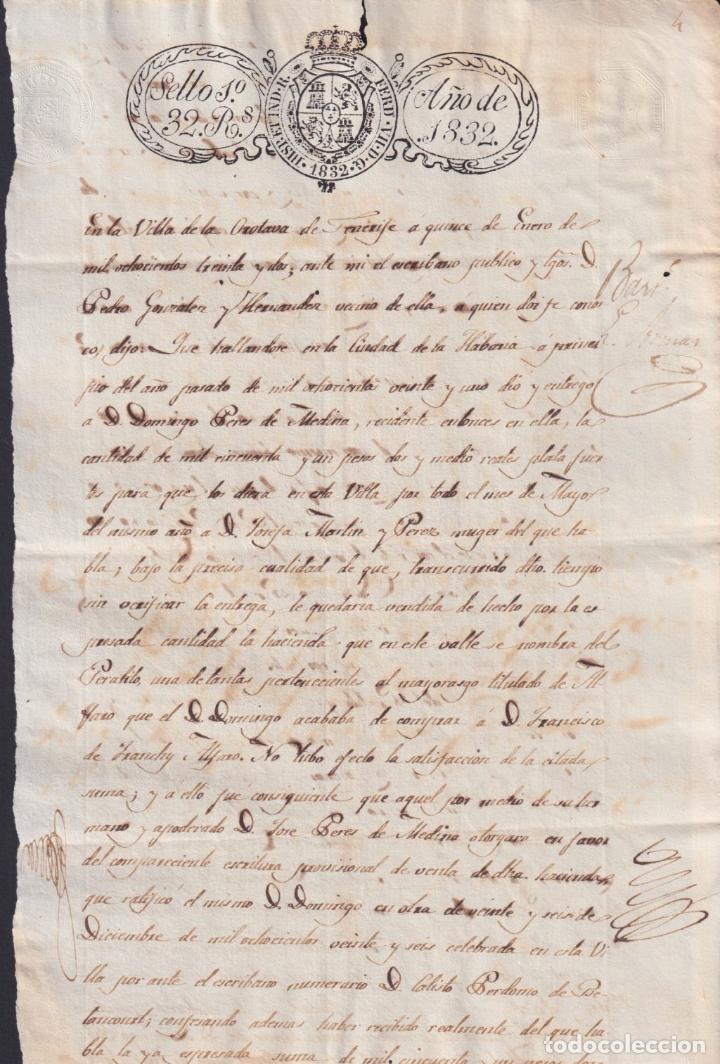 4
Sello 1.º
32. R.ˢ
HISP. ET IND. R. FERD. VII. D. G. 1832
Año de
1832.
En la Villa de la Orotava de Tenerife á quince de Enero de
mil ochocientos treinta y dos; ante mi el escribano publico y tgos. D.
Pedro Gonzalez y Hernandez vecino de ella, a quien doi fe conos
co, dijo: Que hallandose en la Ciudad de la Habana á princi
pio del año pasado de mil ochocienta veinte y uno dio y entregó
a D. Domingo Peres de Medina, recidente entonces en ella, la
cantidad de mil cincuenta y un pesos dos y medio reales plata fuer
tes para que los diera en esta Villa por todo el mes de Mayo
del mismo año a D. Josefa Martin y Perez muger del que ha
bla; bajo la precisa cualidad de que, transcurrido dho. tiempo
sin verificar la entrega, le quedaria vendida de hecho por la es
presada cantidad la hacienda que en este valle se nombra del
Peralilo, una de tantas pertenecientes al mayorasgo titulado de Al
faro que el D. Domingo acababa de comprar á D. Francisco
de Franchy Alfaro. No tubo efecto la satisfaccion de la citada
suma; y a ello fue consiguiente que aquel por medio de su her
mano y apoderado D. Jose Peres de Medina otorgara en favor
del compareciente escritura provisional de venta de dha. hacienda,
que ratificó el mismo D. Domingo en otra de veinte y seis de
Diciembre de mil ochocientos veinte y seis celebrada en esta Vi
lla por ante el escribano numerario D. Calisto Perdomo de Be
tancourt; confesando ademas haber recibido realmente del que ha
bla la ya espresada suma de mil cincuenta un pesos dos
todocoleccion